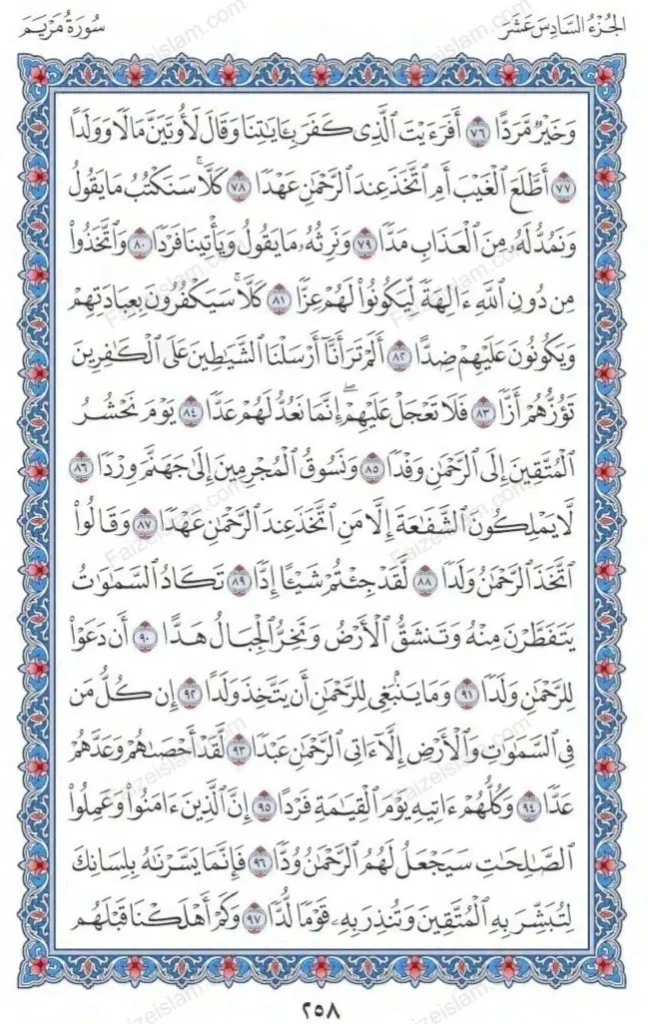 الجُزْءُ السَّادِسَ عَشَرَ
سُورَةُ مَرْيَم
وَخَيْرٌ مَّرَدًّا ٧٦ أَفَرَءَيْتَ ٱلَّذِى كَفَرَ بِـَٔايَـٰتِنَا وَقَالَ لَأُوتَيَنَّ مَالًا وَوَلَدًا
٧٧ أَطَّلَعَ ٱلْغَيْبَ أَمِ ٱتَّخَذَ عِندَ ٱلرَّحْمَـٰنِ عَهْدًا ٧٨ كَلَّا ۚ سَنَكْتُبُ مَا يَقُولُ
وَنَمُدُّ لَهُۥ مِنَ ٱلْعَذَابِ مَدًّا ٧٩ وَنَرِثُهُۥ مَا يَقُولُ وَيَأْتِينَا فَرْدًا ٨٠ وَٱتَّخَذُوا۟
مِن دُونِ ٱللَّهِ ءَالِهَةً لِّيَكُونُوا۟ لَهُمْ عِزًّا ٨١ كَلَّا ۚ سَيَكْفُرُونَ بِعِبَادَتِهِمْ
وَيَكُونُونَ عَلَيْهِمْ ضِدًّا ٨٢ أَلَمْ تَرَ أَنَّآ أَرْسَلْنَا ٱلشَّيَـٰطِينَ عَلَى ٱلْكَـٰفِرِينَ
تَؤُزُّهُمْ أَزًّا ٨٣ فَلَا تَعْجَلْ عَلَيْهِمْ ۖ إِنَّمَا نَعُدُّ لَهُمْ عَدًّا ٨٤ يَوْمَ نَحْشُرُ
ٱلْمُتَّقِينَ إِلَى ٱلرَّحْمَـٰنِ وَفْدًا ٨٥ وَنَسُوقُ ٱلْمُجْرِمِينَ إِلَىٰ جَهَنَّمَ وِرْدًا ٨٦
لَّا يَمْلِكُونَ ٱلشَّفَـٰعَةَ إِلَّا مَنِ ٱتَّخَذَ عِندَ ٱلرَّحْمَـٰنِ عَهْدًا ٨٧ وَقَالُوا۟
ٱتَّخَذَ ٱلرَّحْمَـٰنُ وَلَدًا ٨٨ لَّقَدْ جِئْتُمْ شَيْـًٔا إِدًّا ٨٩ تَكَادُ ٱلسَّمَـٰوَٰتُ
يَتَفَطَّرْنَ مِنْهُ وَتَنشَقُّ ٱلْأَرْضُ وَتَخِرُّ ٱلْجِبَالُ هَدًّا ٩٠ أَن دَعَوْا۟
لِلرَّحْمَـٰنِ وَلَدًا ٩١ وَمَا يَنۢبَغِى لِلرَّحْمَـٰنِ أَن يَتَّخِذَ وَلَدًا ٩٢ إِن كُلُّ مَن
فِى ٱلسَّمَـٰوَٰتِ وَٱلْأَرْضِ إِلَّآ ءَاتِى ٱلرَّحْمَـٰنِ عَبْدًا ٩٣ لَّقَدْ أَحْصَىٰهُمْ وَعَدَّهُمْ
عَدًّا ٩٤ وَكُلُّهُمْ ءَاتِيهِ يَوْمَ ٱلْقِيَـٰمَةِ فَرْدًا ٩٥ إِنَّ ٱلَّذِينَ ءَامَنُوا۟ وَعَمِلُوا۟
ٱلصَّـٰلِحَـٰتِ سَيَجْعَلُ لَهُمُ ٱلرَّحْمَـٰنُ وُدًّا ٩٦ فَإِنَّمَا يَسَّرْنَـٰهُ بِلِسَانِكَ
لِتُبَشِّرَ بِهِ ٱلْمُتَّقِينَ وَتُنذِرَ بِهِۦ قَوْمًا لُّدًّا ٩٧ وَكَمْ أَهْلَكْنَا قَبْلَهُم
٢٥٨
Faizeislam.com